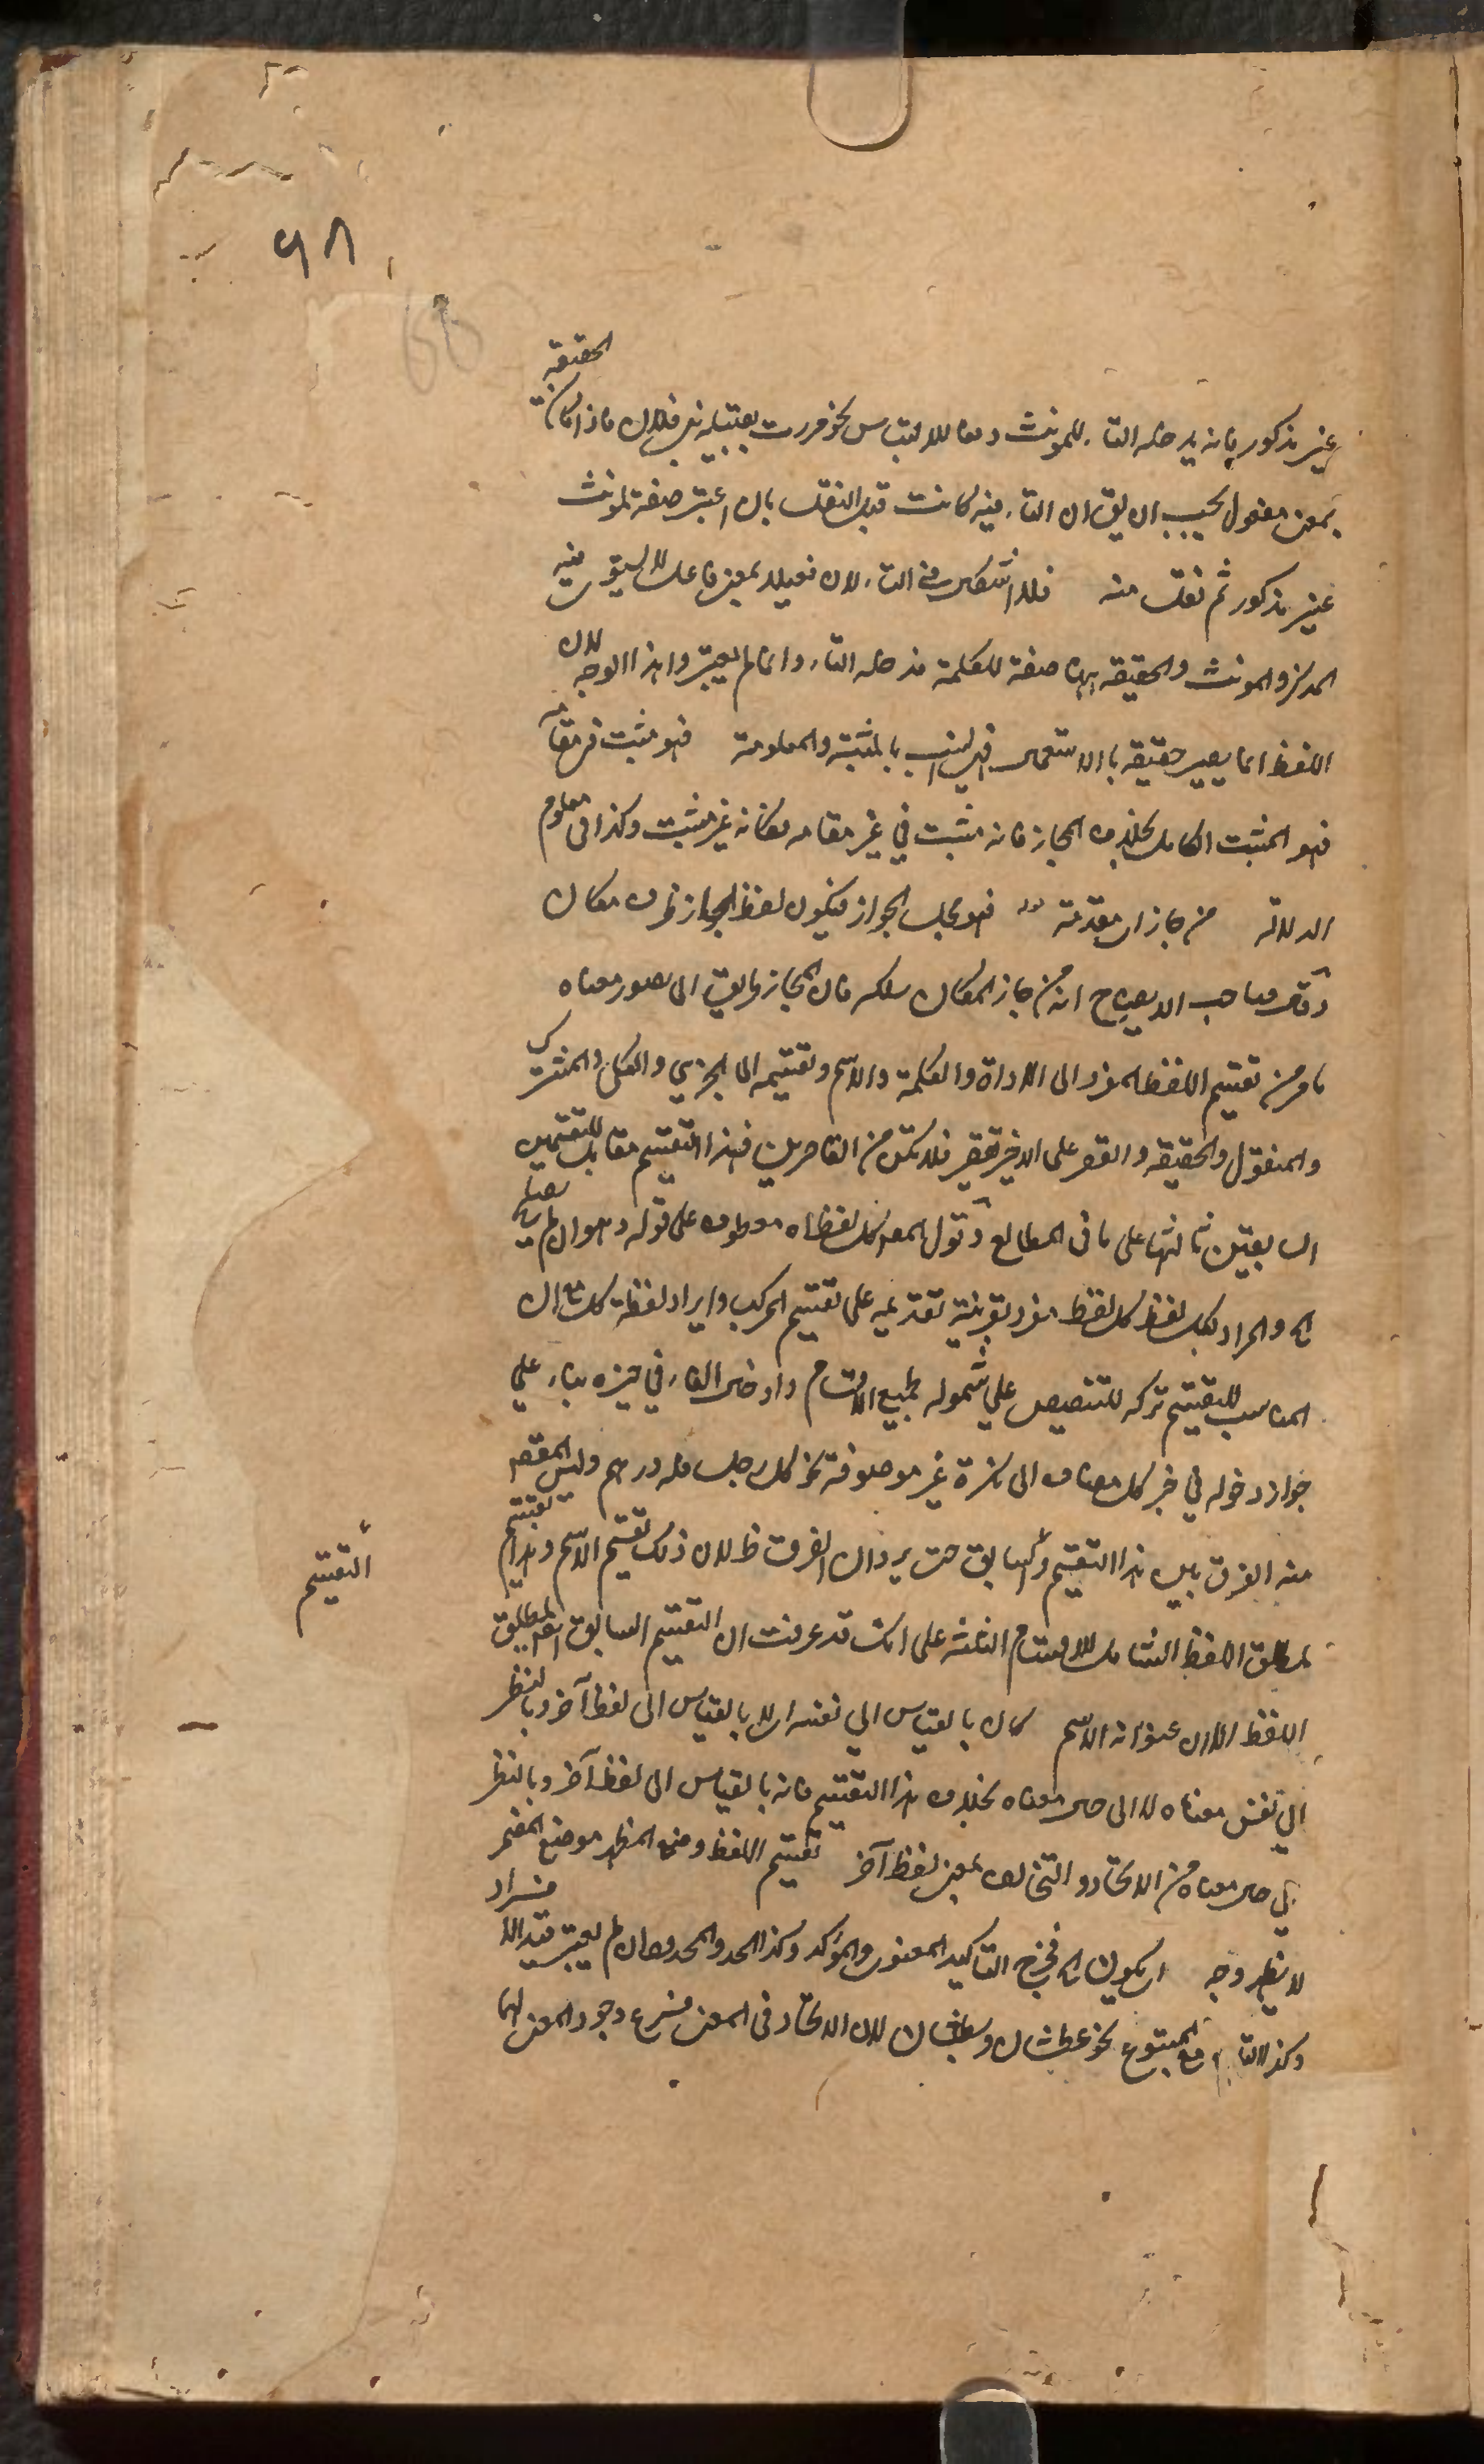 ٩٨
غير مذكور فانه يدخله التاء للمونث دفعا للالتباس نحو مررت بقتيلة بنى فلان فاذا كان الحقيقة
بمعنى مفعول يجب ان يق ان التاء فيه كانت قبل النقل بان اعتبر صفة لمونث
غير مذكور ثم نقلت منه فلا اشكال فى التاء لان فعيلا بمعنى فاعل لا يستوى فيه
المذكر والمونث والحقيقة ههنا صفة للكلمة فدخله التاء وانما لم يعتبروا هذا الوجه لان
اللفظ انما يصير حقيقة بالاستعمال فهى انسب بالمثبتة والمعلومة فهو مثبت فى مقامه
فهو المثبت الكامل بخلاف المجاز فانه مثبت فى غير مقامه فكانه غير مثبت وكذا فى معلوم
الدلالة من جاز ان مقدمة فهو محل الجواز فيكون لفظ المجاز ظرف مكان
وقال صاحب الايضاح انه من جاز المكان سلكه فان المجاز طريق الى تصور معناه
ما مر من تقسيم اللفظ المفرد الى الاداة والكلمة والاسم وتقسيمه الى الجزئى والكلى والمشترك
والمنقول والحقيقة والقصر على الاخير تقصير فلا تكن من القاصرين فهذا التقسيم مقابل للتقسيمين
السابقين ثالثها على ما فى المطالع وقول المص كل لفظ اه معطوف على قوله وهو ان لم يصلح
اه والمراد بكل لفظ كل لفظ مفرد بقرينة تقديمه على تقسيم المركب وايراد لفظة كل مع ان
المناسب للتقسيم تركه للتنصيص على شموله لجميع الاقسام وادخال الفاء فى خبره بناء على
جواز دخوله فى خبر كل مضاف الى نكرة غير موصوفة نحو كل رجل فله درهم وليس المقصود
منه الفرق بين هذا التقسيم والسابق حتى يرد ان الفرق ظ لان ذلك تقسيم الاسم وهذا تقسيم
لمطلق اللفظ الشامل للاقسام الثلثة على انك قد عرفت ان التقسيم السابق ايضا لمطلق
التقسيم
اللفظ الا ان عنوانه الاسم كان بالقياس الى نفسه اى لا بالقياس الى لفظ آخر وبالنظر
الى نفس معناه لا الى حال معناه بخلاف هذا التقسيم فانه بالقياس الى لفظ آخر وبالنظر
الى حال معناه من الاتحاد والتخالف بمعنى لفظ آخر تقسيم اللفظ وضع المظهر موضع المضمر
لا يظهر وجه ان يكون اه فخرج التاكيد المعنوى والمؤكد وكذا الحد والمحدود ان لم يعتبر قيد الافراد
وكذا التابع مع المتبوع نحو عطشان ونطشان لان الاتحاد فى المعنى فرع وجود المعنى لهما